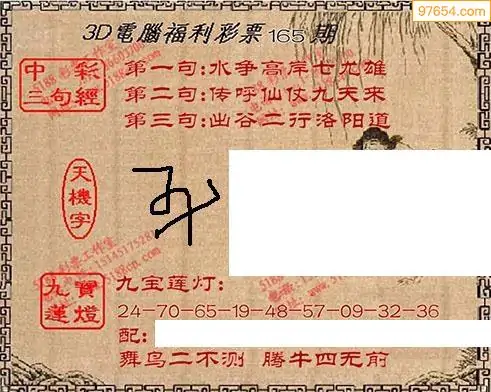 97654.com
3D電腦福利彩票165期
中彩三句經
第一句:水争高岸七九雄
第二句:传呼仙仗九天來
第三句:出谷二行洛阳道
天機字
九寶蓮燈
九宝莲灯:
24-70-65-19-48-57-09-32-36
配:
舞鸟二不测 腾牛四无前